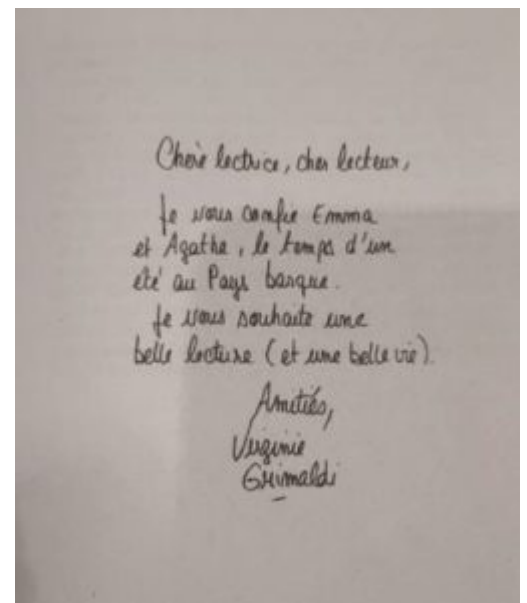 Chère lectrice, cher lecteur,
Je vous confie Emma
et Agathe, le temps d'un
été au Pays basque.
Je vous souhaite une
belle lecture (et une belle vie).
Amitiés,
Virginie
Grimaldi